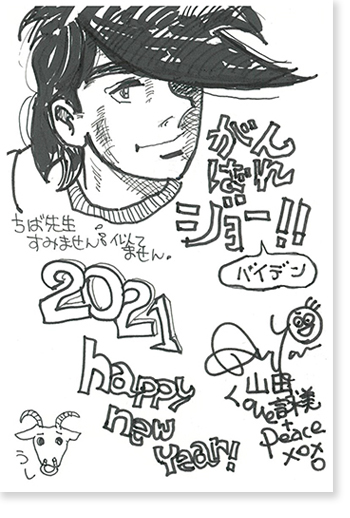 がん
ばれ
ジョー!!
バイデン
ちば先生
すみません。似て
ません。
2021
happy
new
year!
うし
山田
Love詩美
+
peace
xoxo